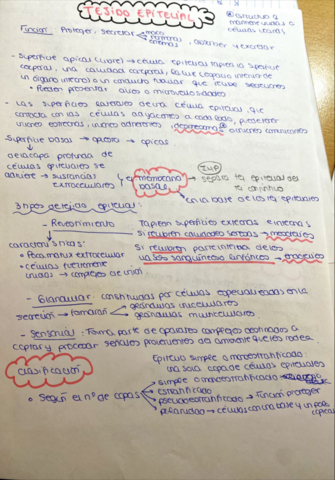 TEJIDO EPITELIAL
Función: Proteger, secretar
moco
hormonas
enzimas
, absorber y excretar
- Superficie apical (libre) → célula epitelial tapiza la superficie
corporal, una cavidad corporal, la luz (región interna de
un órgano interno) o un conducto tubular que recibe secreciones
• Pueden presentar cilios o microvellosidades
- Las superficies laterales de una célula epitelial, que
contacta con las células adyacentes a cada lado, presentan
uniones estrechas, uniones adherentes, desmosomas @ o uniones comunicantes
Superficie basal → opuesta → apical
↓
la capa profunda de
células epiteliales se
adhiere → sustancias
extracelulares
membrana
basal
IMP
→ separa tej epitelial del
tej conjuntivo
es la base de los tej epiteliales
3 tipos de tejido epitelial:
- Revestimiento
Tapizan superficies externas e internas
Si recubren cavidades serosas → mesotelios
Si recubren parte interna de los
vasos sanguíneos o linfáticos → endotelios
características:
• Poca matriz extracelular
• células fuertemente
unidas → complejos de unión
- Glandular → constituidas por células especializadas en la
secreción → forman
glándulas unicelulares
glándulas multicelulares
- Sensorial: Forma parte de aparatos complejos destinados a
captar y procesar señales provenientes del ambiente que los rodea.
Clasificación
Epitelio simple o monoestratificado
una sola capa de células epiteliales
• Según el nº de capas
simple o monoestratificado
estratificado
pseudoestratificado
→ Función proteger
polaridad → células con una base y un polo
apical